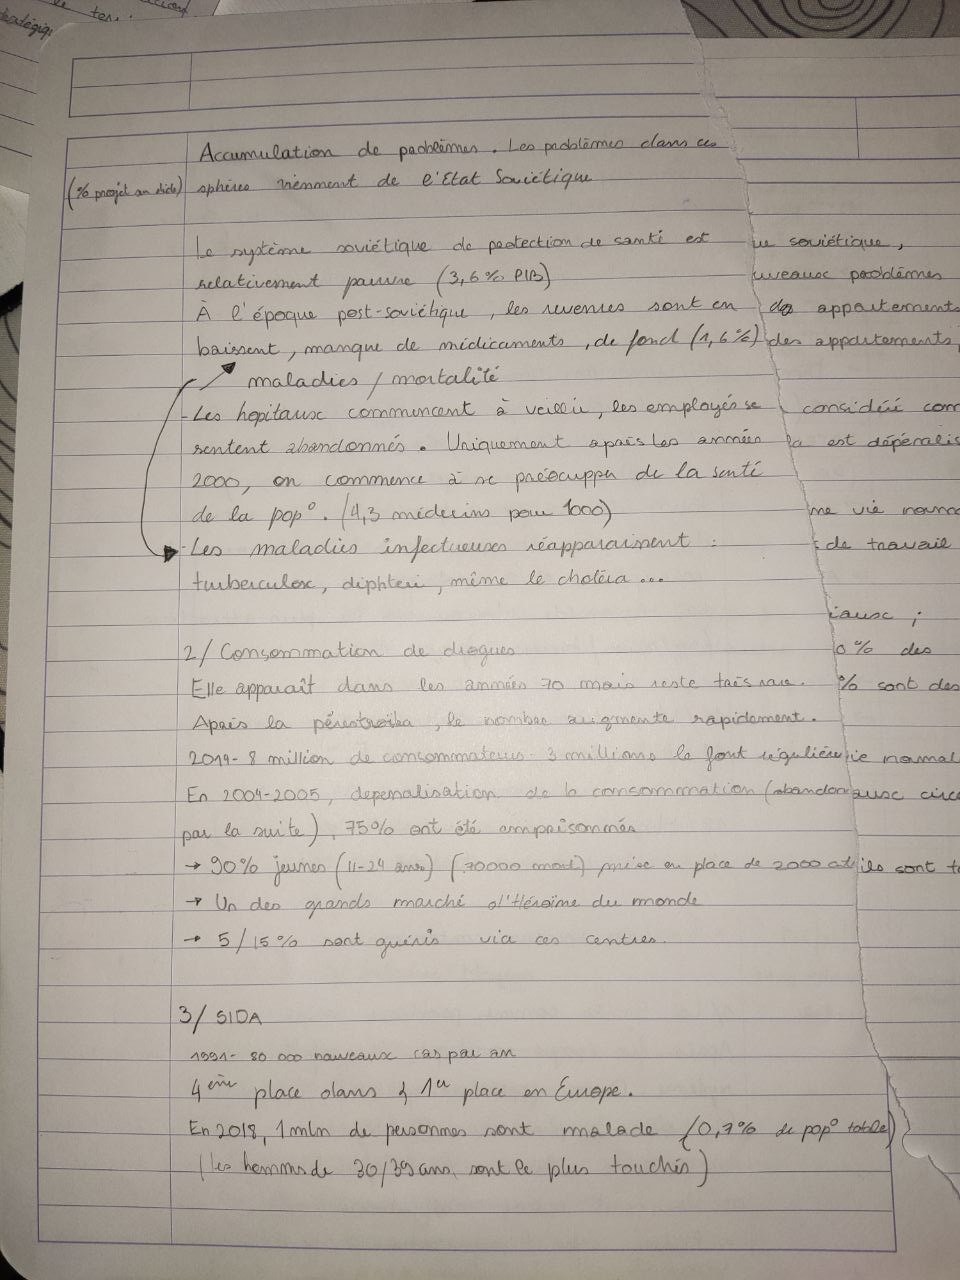 Accumulation de problèmes. Les problèmes dans ces
(% projet an dido) sphères viennent de l'Etat Soviétique
Le système soviétique de protection de santé est
relativement pauvre (3,6% PIB)
À l'époque post-soviétique, les revenues sont en
baissent, manque de médicaments, de fond (1,6%)
maladies / mortalité
- Les hopitaux commencent à veillir, les employés se
sentent abandonnés. Uniquement après les années
2000, on commence à se préoccuper de la santé
de la pop°. (4,3 médecins pour 1000)
- Les maladies infectueuses réapparaissent :
turberculose, diphteri, même le choléra ...
2/ Consommation de drogues
Elle apparaît dans les années 70 mais reste très rare.
Après la pérestroïka, le nombre augmente rapidement.
2014- 8 million de consommateurs - 3 millions le font régulière
En 2004-2005, depenalisation de la consommation (abandon
par la suite), 75% ont été emprisonnés
→ 90% jeunes (11-24 ans) (70000 mort) mise en place de 2000
→ Un des grands marché d'Héroïne du monde
→ 5/15% sont guéris via ces centres.
3/ SIDA
1991- 80 000 nouveaux cas par an
4ème place dans & 1er place en Europe.
En 2018, 1 mln de personnes sont malade (0,7% de pop° totale)
(Les hommes de 30/39 ans, sont le plus touchés)
ue soviétique,
uveaux problèmes
des appartements
des appartements,
considéré com
la est dépénalis
me vie norma
de travail
iaux ;
0% des
% sont des
ie normal
aux circ
ils sont t